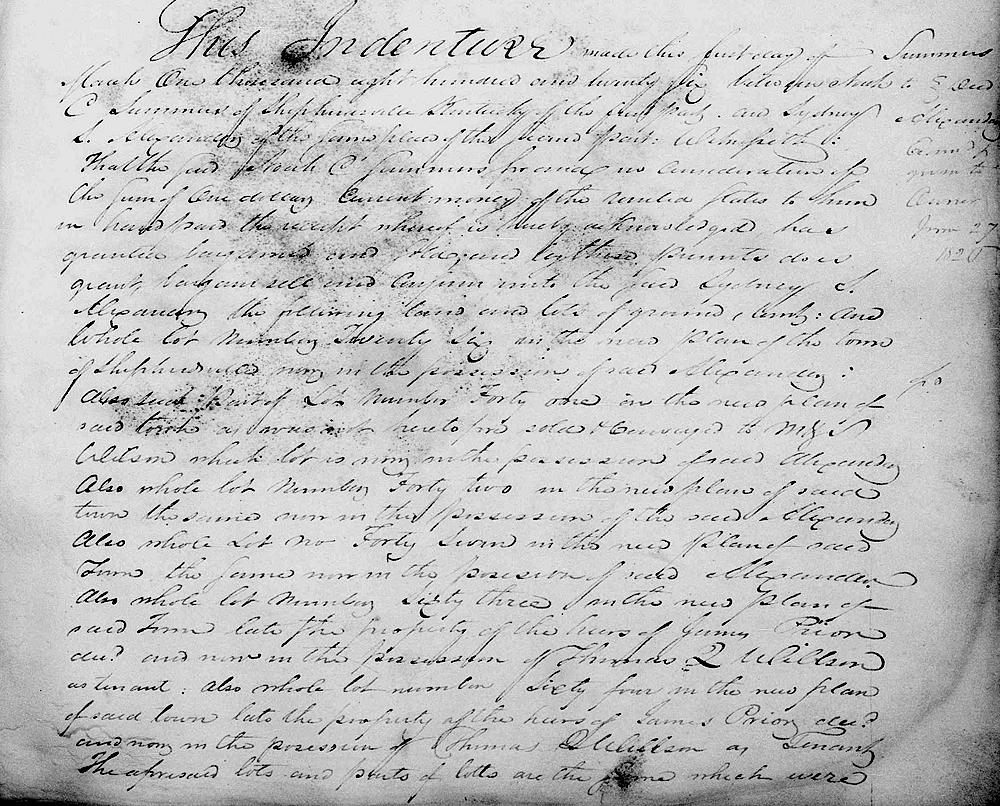 This Indenture made this first day of
March One thousand eight hundred and twenty six between Noah
C Summers of Shepherdsville Kentucky of the first part and Sydney
S. Alexander of the same place of the second part: Witnesseth:
That the said Noah C Summers for and in consideration of
the sum of One dollar Current money of the United States to him
in hand paid the receipt whereof is hereby acknowledged has
granted bargained and sold and by these presents does
grant, bargain sell and confirm unto the said Sydney S.
Alexander the following land and lots of ground, (viz): and
Whole lot Number Twenty Six in the new plan of the town
of Shepherdsville now in the possession of said Alexander:
Also such part of Lot Number Forty one in the new plan of
said town as was not heretofore sold & conveyed to M & S
Wilson which lot is now in the possession of said Alexander
Also whole lot Number Forty two in the new plan of said
town the same now in the possession of the said Alexander
Also whole Lot No Forty Seven in the new Plan of said
Town the same now in the possesion of said Alexander
Also whole lot Number Sixty three in the new plan of
said Town late the property of the heirs of James Prior
decd and now in the possession of Thomas Q Willson
as tenant: also whole lot number Sixty four in the new plan
of said town late the property of the heirs of James Prior decd
and now in the posession of Thomas Q Willson as Tenant
The aforesaid lots and parts of lotts are the same which were
Summers
to Deed
Alexander
June 27
1826